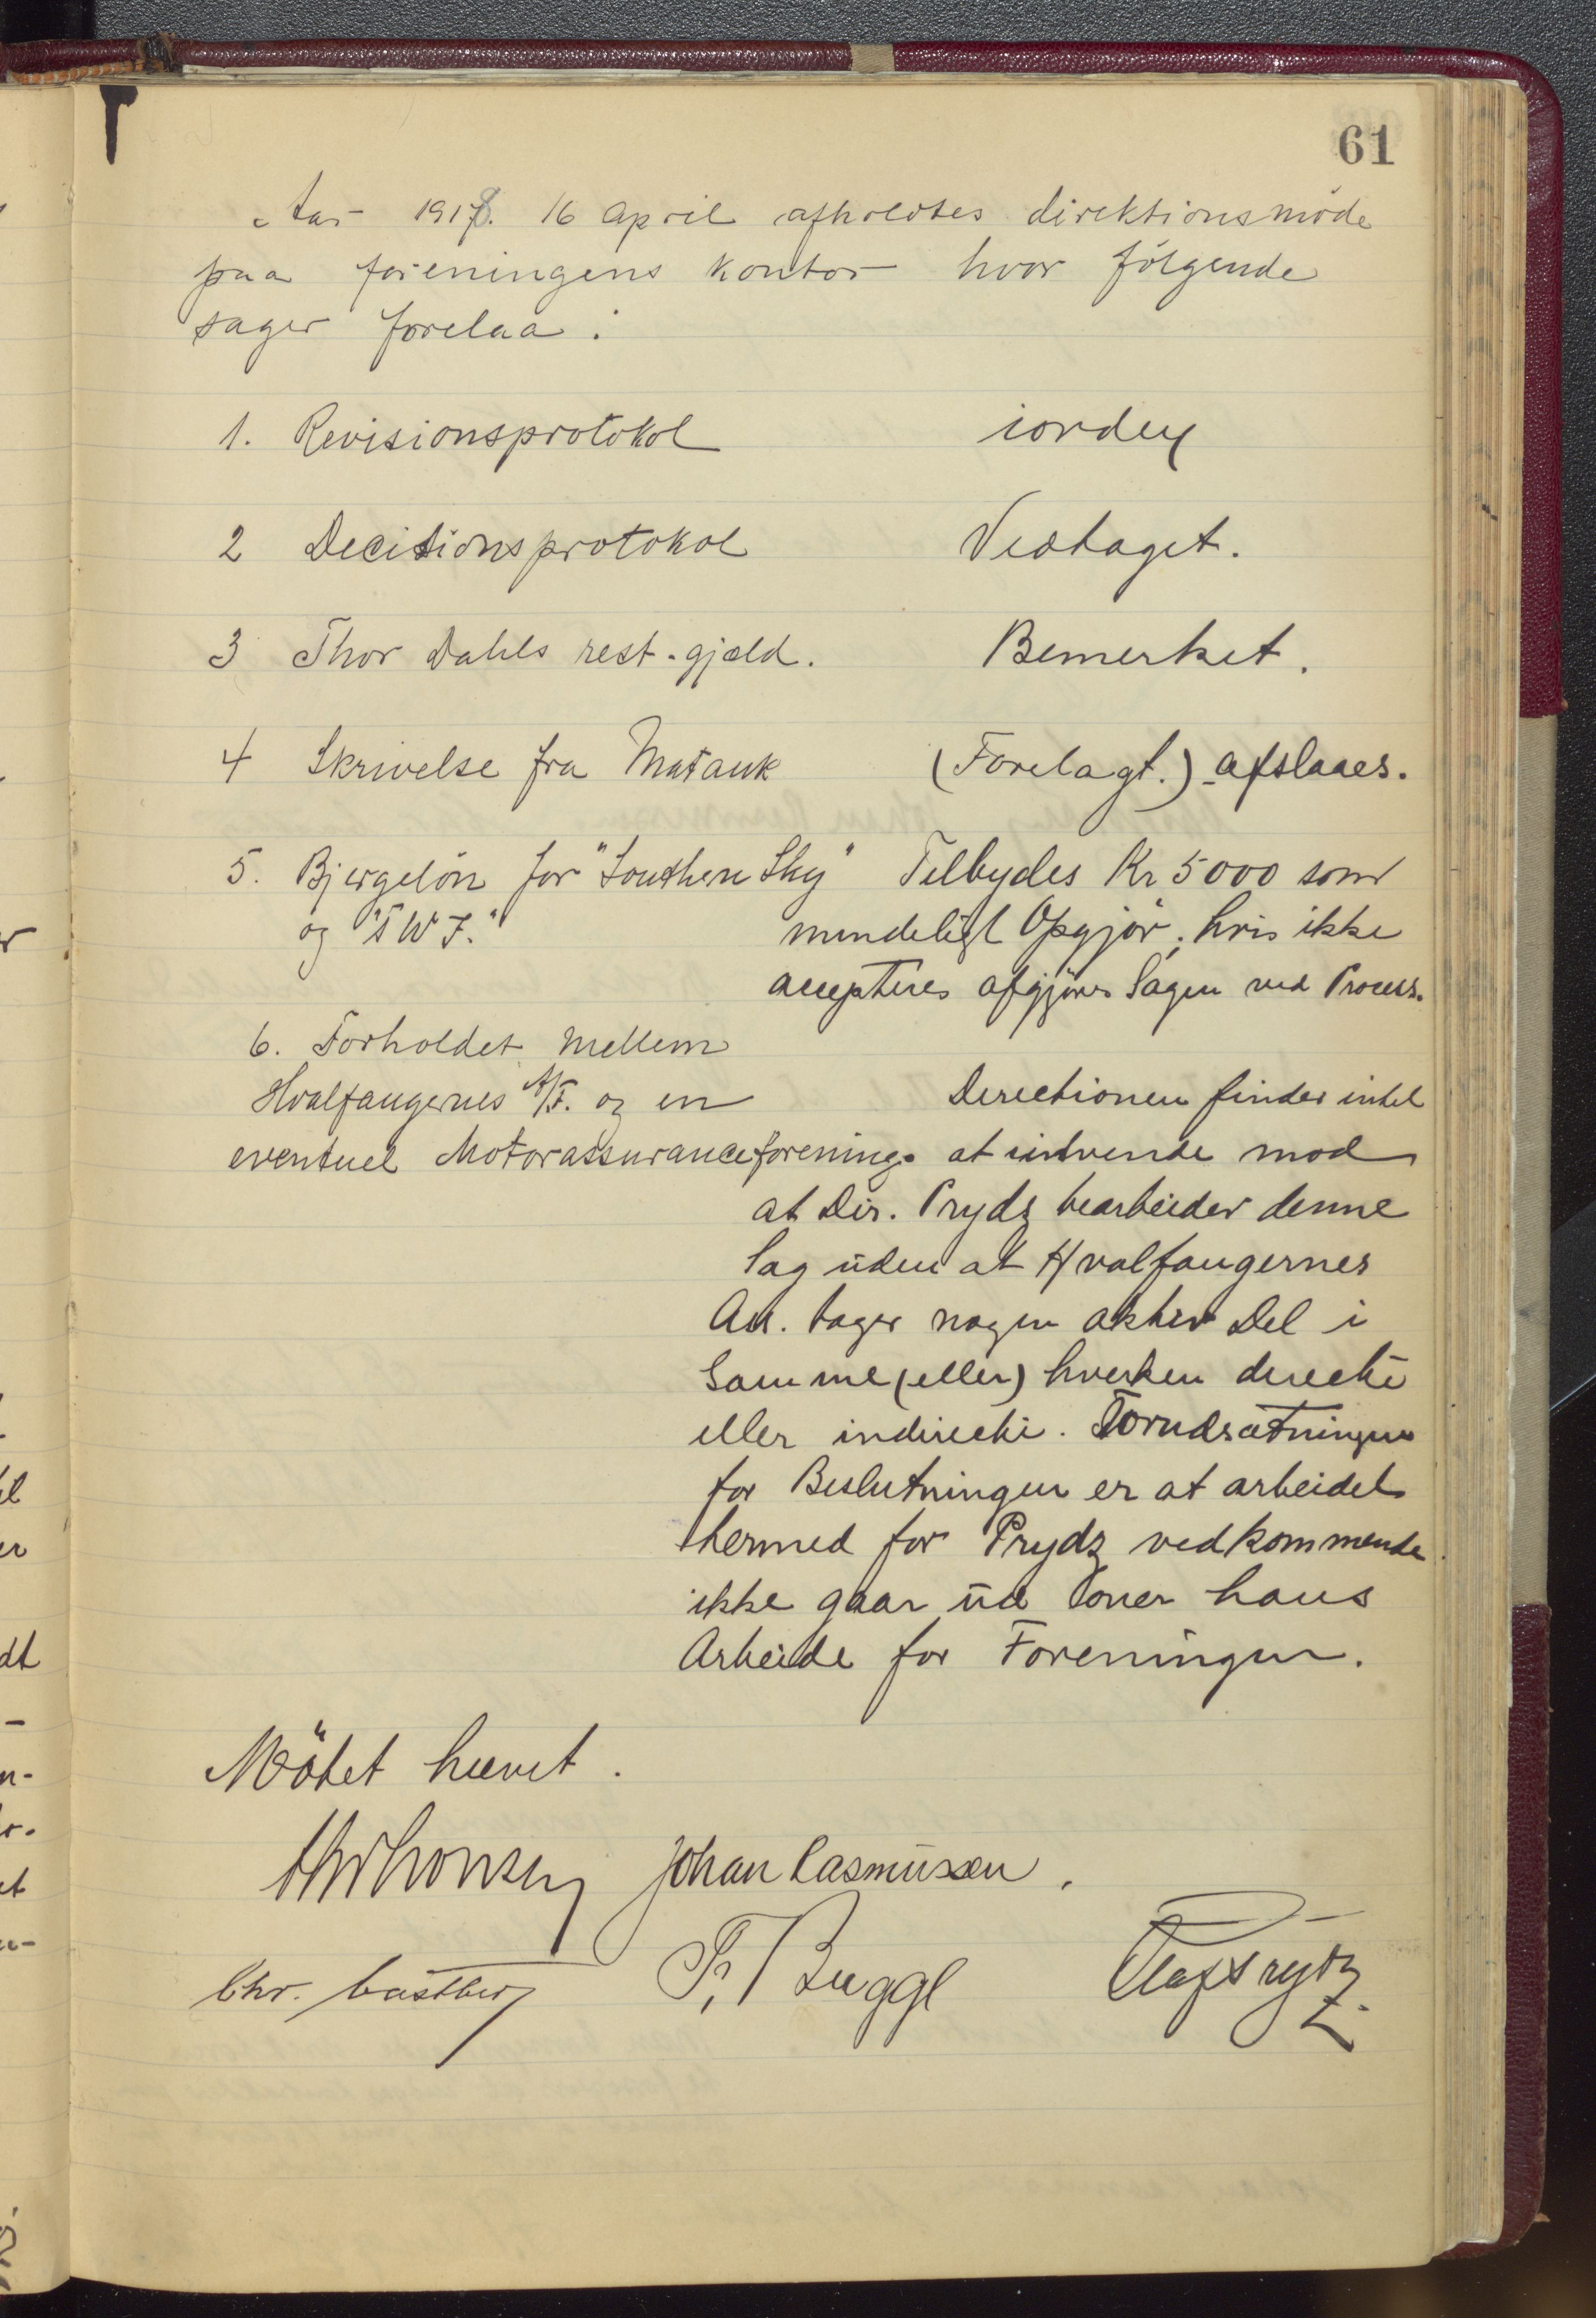 61
Aar 1918. 16 April afholdtes direktionsmöde
paa foreningens kontor hvor fölgende
sager forelaa:
1. Revisionsprotokol iorden
2 Decisionsprotokol Vedtaget.
3 Thor Dahls rest-gjæld. Bemerket.
4 Skrivelse fra Matauk (Forelagt.) afslaaes.
5. Bjergelön for "Southern Sky" Tilbydes Kr 5000 som
og "T W F." mindeligt Opgjör, hvis ikke
accepteres afgjöres Sagen ved Process.
6. Forholdet mellem
Hvalfangernes A/F. og en Directionen finder intet
eventuel Motorassuranceforening. at indvende mod
at Dir. Prydz bearbeider denne
Sag uden at Hvalfangernes
Ass. tager nogen aktiv Del i
Samme (eller) hverken directe
eller indirecte. Forudsætningen
for Beslutningen er at arbeidet
hermed for Prydz vedkommende
ikke gaar ud over hans
Arbeide for Foreningen.
Mötet hævet.
Johan Rasmussen.
Chr. Castberg Fr. Bugge Olaf Prydz